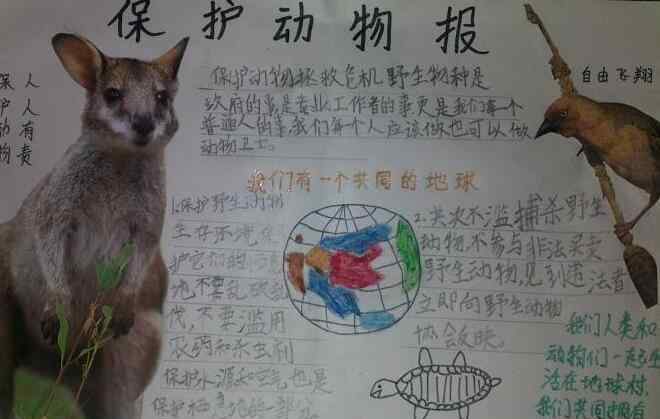 保护动物报
保护动物 人人有责
自由飞翔
保护动物拯救危机野生物种是
政府的事是专业工作者的事更是我们每一个
普通人的事我们每个人应该做也可以做
动物卫士。
我们有一个共同的地球
1.保护野生动物
生存环境
护它们的
地不要乱砍
伐，不要滥用
农药和杀虫剂
保护水源和空气也是
保护栖息地的一部分
2.滥捕杀野生
动物，不参与非法买卖
野生动物，见到违法者
立即向野生动物
协会反映。
我们人类和
动物们一起生
活在地球村，
我们共同拥有